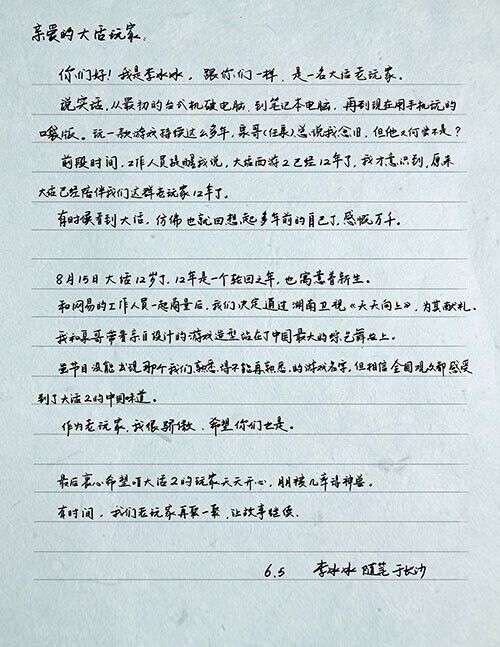 亲爱的大话玩家，
你们好！我是李冰冰，跟你们一样，是一名大话老玩家。
说实话，从最初的台式机硬电脑，到笔记本电脑，再到现在用手机玩的
口袋版。玩一款游戏持续这么多年，泉哥(任泉)总说我念旧，但他又何尝不是？
前段时间，工作人员提醒我说，大话西游2已经12年了，我才意识到，原来
大话已经陪伴我们这群老玩家12年了。
有时候看到大话，仿佛也就回想起多年前的自己了，感慨万千。
8月15日大话12岁了，12年是一个轮回之年，也寓意着新生。
和网易的工作人员一起商量后，我们决定通过湖南卫视《天天向上》，为其献礼。
我和泉哥带着亲自设计的游戏造型站在了中国最大的综艺舞台上。
虽节目没能出现那个我们熟悉得不能再熟悉的游戏名字，但相信全国观众都感受
到了大话2的中国味道。
作为老玩家，我很骄傲、希望你们也是。
最后衷心希望大话2的玩家天天开心，胡模几车神兽。
有时间，我们老玩家再聚一聚，让故事继续。
6.5 李冰冰 随笔于长沙